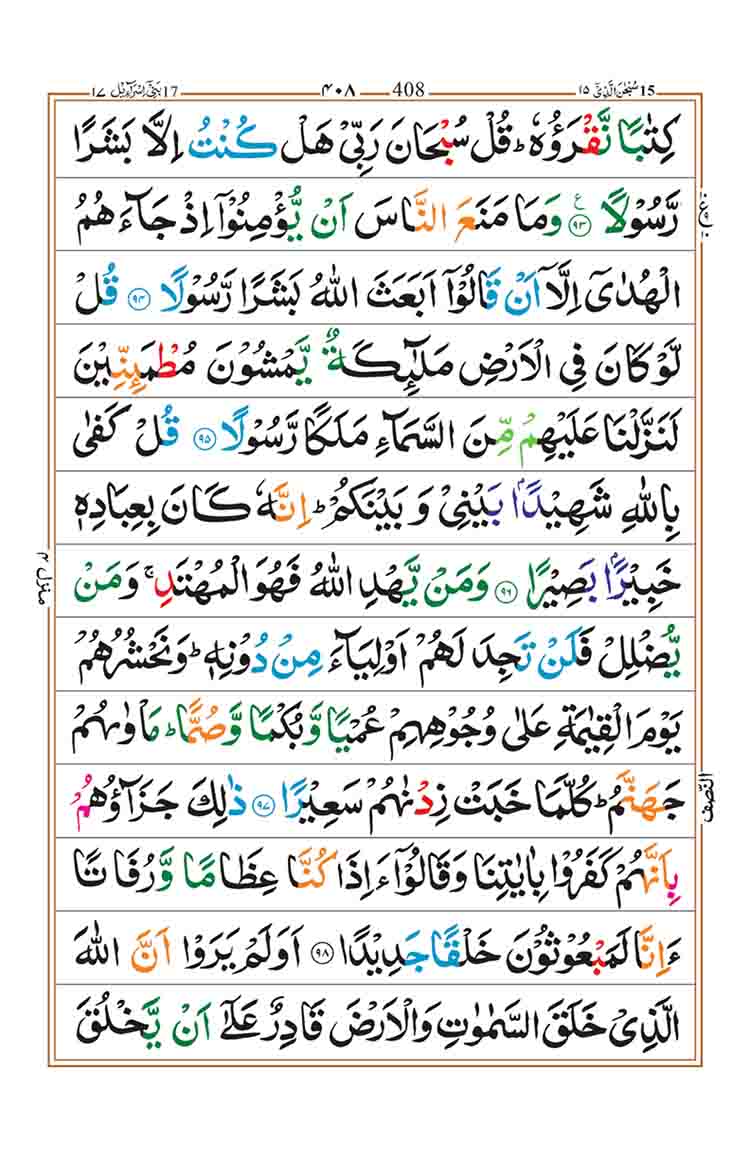 سُبْحٰنَ الَّذِیْۤ ١٥ 15
408 ۴۰۸
17 بَنِیْۤ اِسْرَآءِیْلَ ١٧
كِتٰبًا نَّقْرَؤُهٗ ؕ قُلْ سُبْحَانَ رَبِّیْ هَلْ كُنْتُ اِلَّا بَشَرًا
رَّسُوْلًا ۠ ع ﴿۹۳﴾ وَمَا مَنَعَ النَّاسَ اَنْ یُّؤْمِنُوْۤا اِذْ جَآءَهُمُ
الْهُدٰۤی اِلَّاۤ اَنْ قَالُوْۤا اَبَعَثَ اللّٰهُ بَشَرًا رَّسُوْلًا ﴿۹۴﴾ قُلْ
لَّوْ كَانَ فِی الْاَرْضِ مَلٰٓىِٕكَةٌ یَّمْشُوْنَ مُطْمَىِٕنِّیْنَ
لَنَزَّلْنَا عَلَیْهِمْ مِّنَ السَّمَآءِ مَلَكًا رَّسُوْلًا ﴿۹۵﴾ قُلْ كَفٰی
بِاللّٰهِ شَهِیْدًۢا بَیْنِیْ وَ بَیْنَكُمْ ؕ اِنَّهٗ كَانَ بِعِبَادِهٖ
خَبِیْرًۢا بَصِیْرًا ﴿۹۶﴾ وَمَنْ یَّهْدِ اللّٰهُ فَهُوَ الْمُهْتَدِ ۚ وَمَنْ
یُّضْلِلْ فَلَنْ تَجِدَ لَهُمْ اَوْلِیَآءَ مِنْ دُوْنِهٖ ؕ وَنَحْشُرُهُمْ
یَوْمَ الْقِیٰمَةِ عَلٰی وُجُوْهِهِمْ عُمْیًا وَّبُكْمًا وَّصُمًّا ؕ مَاْوٰىهُمْ
جَهَنَّمُ ؕ كُلَّمَا خَبَتْ زِدْنٰهُمْ سَعِیْرًا ﴿۹۷﴾ ذٰلِكَ جَزَآؤُهُمْ
بِاَنَّهُمْ كَفَرُوْا بِاٰیٰتِنَا وَقَالُوْۤا ءَاِذَا كُنَّا عِظَامًا وَّرُفَاتًا
ءَاِنَّا لَمَبْعُوْثُوْنَ خَلْقًا جَدِیْدًا ﴿۹۸﴾ اَوَلَمْ یَرَوْا اَنَّ اللّٰهَ
الَّذِیْ خَلَقَ السَّمٰوٰتِ وَالْاَرْضَ قَادِرٌ عَلٰۤی اَنْ یَّخْلُقَ
منزل ۴
النّصف